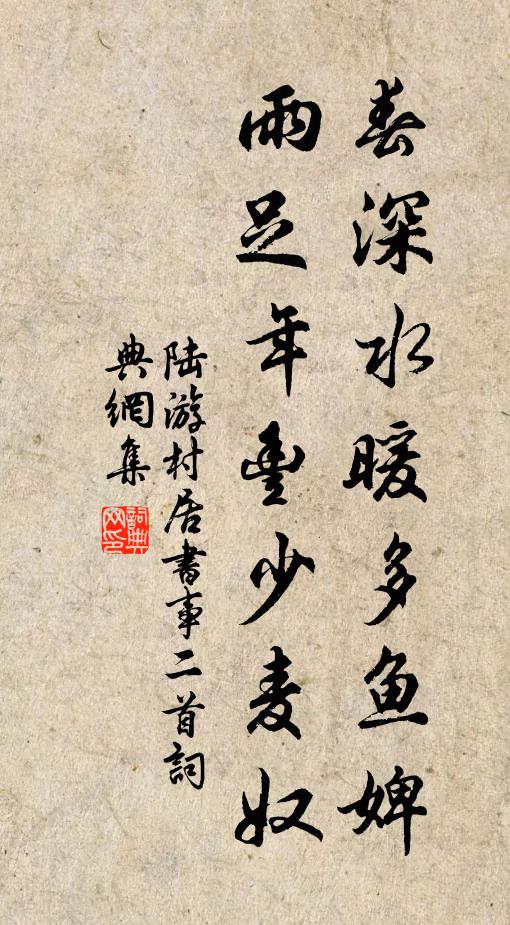 春深水暖多鱼婢
雨足年豊少麦奴
陆游村居書事二首詞
典網集
詞典网印